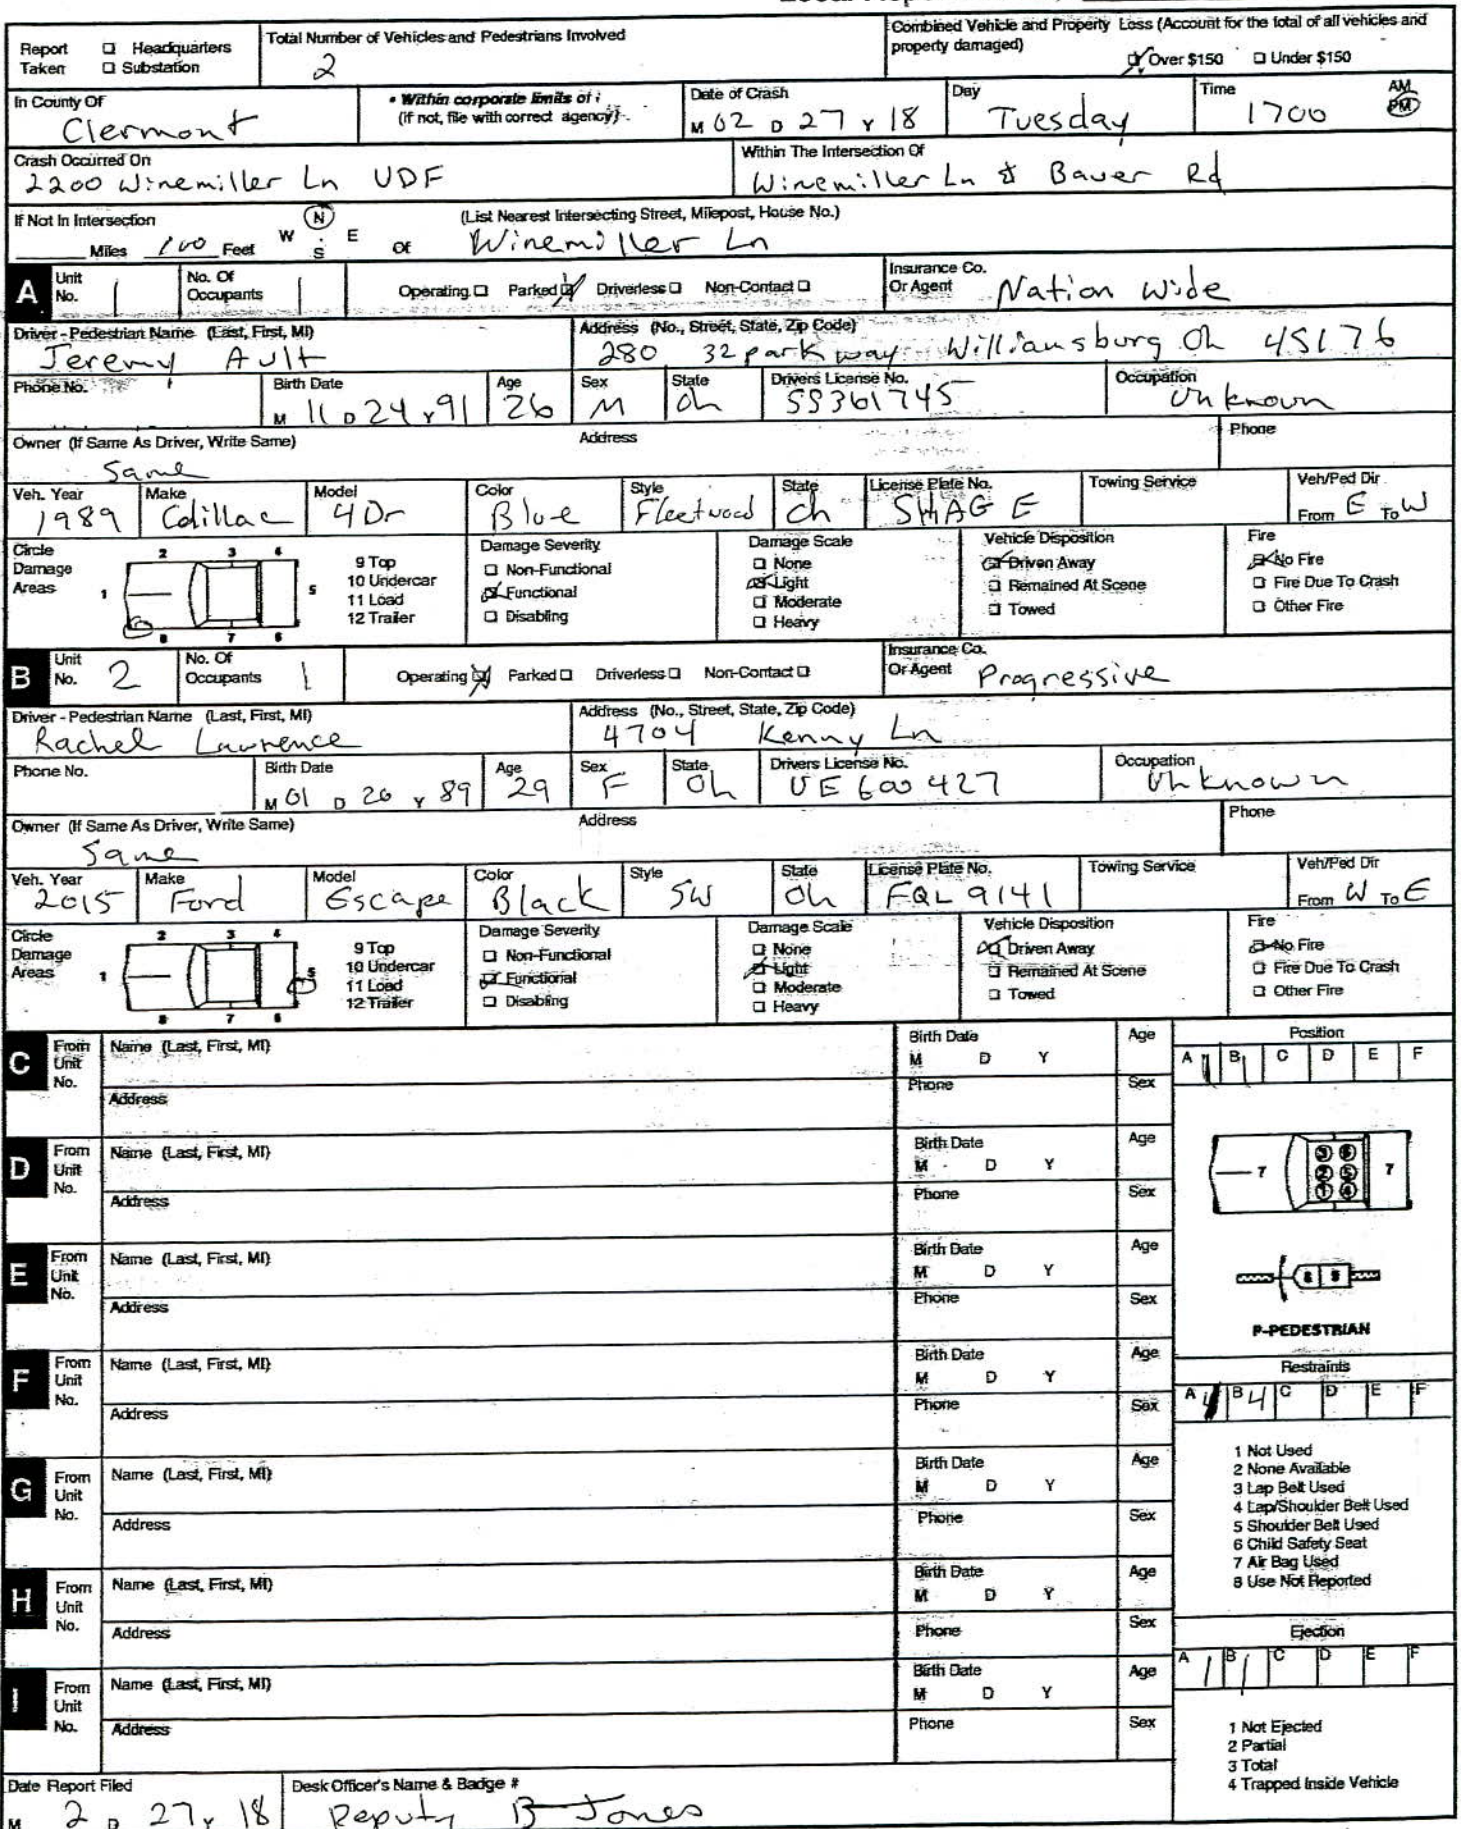 Report Taken ☐ Headquarters ☐ Substation
Total Number of Vehicles and Pedestrians Involved
2
Combined Vehicle and Property Loss (Account for the total of all vehicles and property damaged)
☑ Over $150 ☐ Under $150
In County Of
Clermont
• Within corporate limits of :
(if not, file with correct agency)
Date of Crash
M 02 D 27 Y 18
Day
Tuesday
Time
1700 AM PM
Crash Occurred On
2200 Winemiller Ln UDF
Within The Intersection Of
Winemiller Ln & Bauer Rd
If Not In Intersection
Miles 100 Feet N W E S Of
(List Nearest Intersecting Street, Milepost, House No.)
Winemiller Ln
A Unit No. 1
No. Of Occupants 1
Operating ☐ Parked ☑ Driverless ☐ Non-Contact ☐
Insurance Co. Or Agent Nation Wide
Driver - Pedestrian Name (Last, First, MI)
Jeremy Ault
Address (No., Street, State, Zip Code)
280 32 parkway Williansburg Oh 45176
Phone No.
Birth Date
M 11 D 24 Y 91
Age
26
Sex
M
State
Oh
Drivers License No.
SS361745
Occupation
Unknown
Owner (If Same As Driver, Write Same)
Same
Address
Phone
Veh. Year
1989
Make
Cdillac
Model
4Dr
Color
Blue
Style
Fleetwood
State
Oh
License Plate No.
SHAG E
Towing Service
Veh/Ped Dir
From E To W
Circle Damage Areas
1 2 3 4 5 6 7 8
9 Top
10 Undercar
11 Load
12 Trailer
Damage Severity
☐ Non-Functional
☑ Functional
☐ Disabling
Damage Scale
☐ None
☑ Light
☐ Moderate
☐ Heavy
Vehicle Disposition
☑ Driven Away
☐ Remained At Scene
☐ Towed
Fire
☑ No Fire
☐ Fire Due To Crash
☐ Other Fire
B Unit No. 2
No. Of Occupants 1
Operating ☑ Parked ☐ Driverless ☐ Non-Contact ☐
Insurance Co. Or Agent Progressive
Driver - Pedestrian Name (Last, First, MI)
Rachel Lawrence
Address (No., Street, State, Zip Code)
4704 Kenny Ln
Phone No.
Birth Date
M 01 D 26 Y 89
Age
29
Sex
F
State
Oh
Drivers License No.
UE600427
Occupation
Unknown
Owner (If Same As Driver, Write Same)
Same
Address
Phone
Veh. Year
2015
Make
Ford
Model
Escape
Color
Black
Style
SW
State
Oh
License Plate No.
FQL 9141
Towing Service
Veh/Ped Dir
From W To E
Circle Damage Areas
1 2 3 4 5 6 7 8
9 Top
10 Undercar
11 Load
12 Trailer
Damage Severity
☐ Non-Functional
☑ Functional
☐ Disabling
Damage Scale
☐ None
☑ Light
☐ Moderate
☐ Heavy
Vehicle Disposition
☑ Driven Away
☐ Remained At Scene
☐ Towed
Fire
☑ No Fire
☐ Fire Due To Crash
☐ Other Fire
C From Unit No.
Name (Last, First, MI)
Birth Date M D Y
Age
Address
Phone
Sex
D From Unit No.
Name (Last, First, MI)
Birth Date M D Y
Age
Address
Phone
Sex
E From Unit No.
Name (Last, First, MI)
Birth Date M D Y
Age
Address
Phone
Sex
F From Unit No.
Name (Last, First, MI)
Birth Date M D Y
Age
Address
Phone
Sex
G From Unit No.
Name (Last, First, MI)
Birth Date M D Y
Age
Address
Phone
Sex
H From Unit No.
Name (Last, First, MI)
Birth Date M D Y
Age
Address
Phone
Sex
I From Unit No.
Name (Last, First, MI)
Birth Date M D Y
Age
Address
Phone
Sex
Position
A 1 B 1 C D E F
7 3 6 2 5 1 4 7
8 9
P-PEDESTRIAN
Restraints
A 4 B 4 C D E F
1 Not Used
2 None Available
3 Lap Belt Used
4 Lap/Shoulder Belt Used
5 Shoulder Belt Used
6 Child Safety Seat
7 Air Bag Used
8 Use Not Reported
Ejection
A 1 B 1 C D E F
1 Not Ejected
2 Partial
3 Total
4 Trapped Inside Vehicle
Date Report Filed
M 2 D 27 Y 18
Desk Officer's Name & Badge #
Deputy B Jones